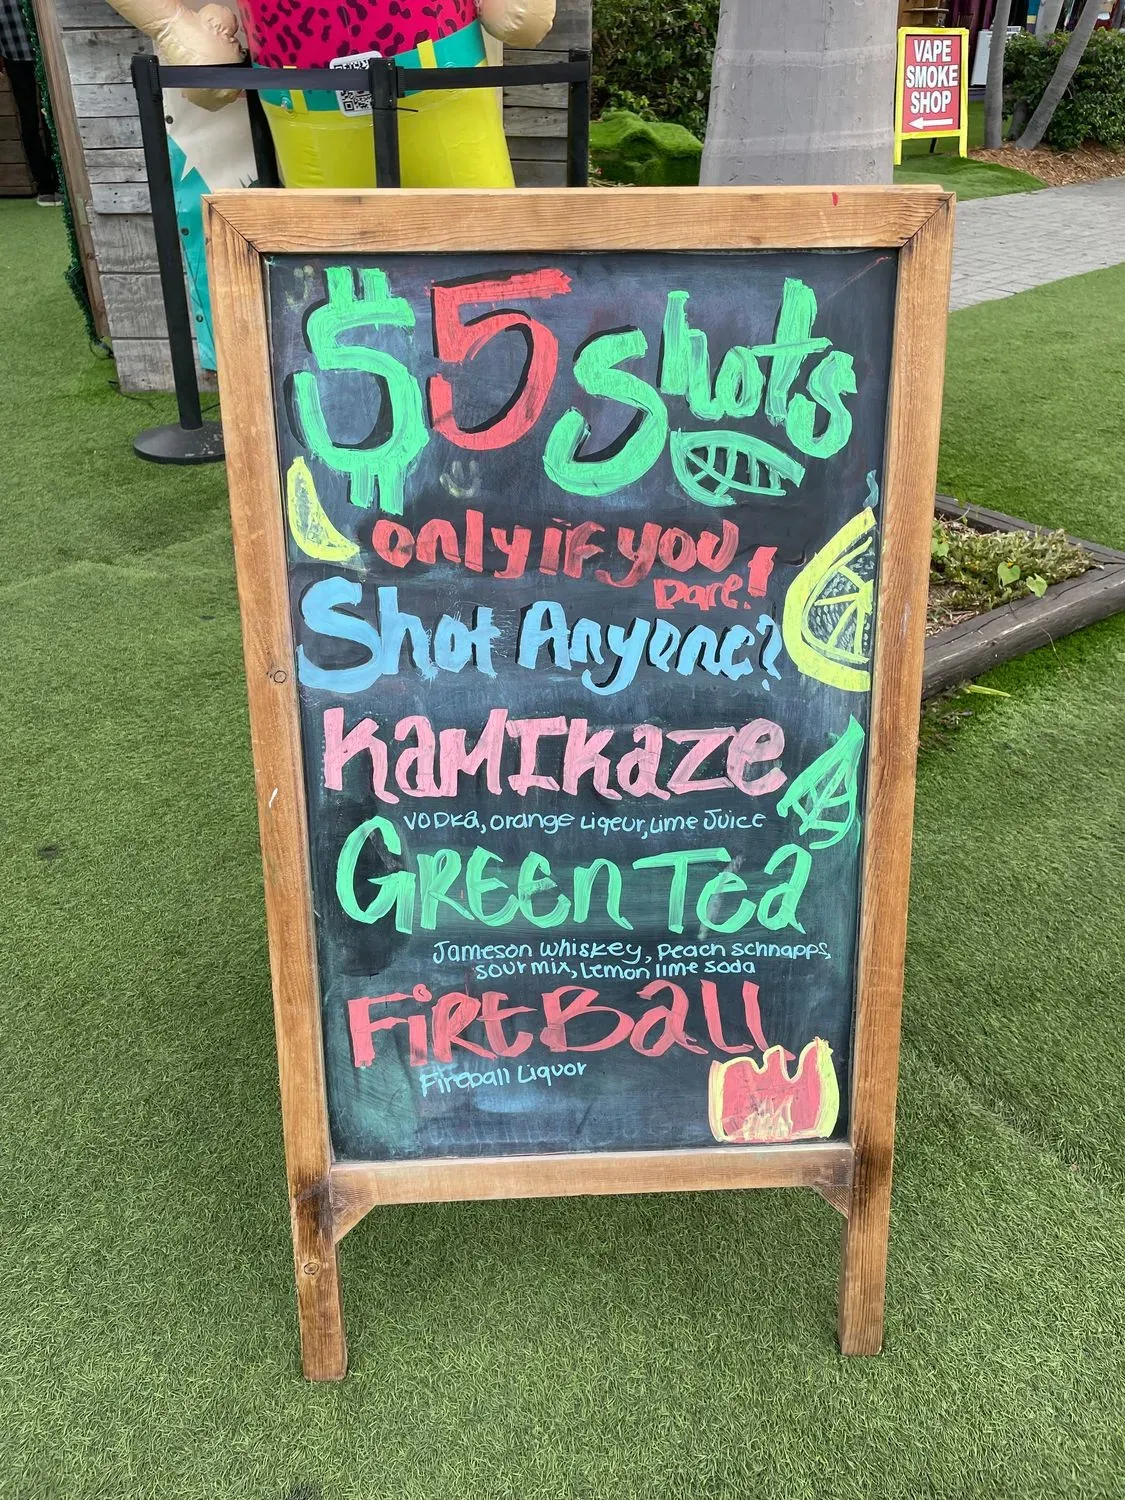 VAPE
SMOKE
SHOP
$5 Shots
only if you
Dare!
Shot Anyone?
KAMIKaze
VODKa, orange Liqeur, Lime Juice
GREEn Tea
Jameson whiskey, peach schnapps,
sour mix, Lemon lime soda
FiREBall
Fireball Liquor